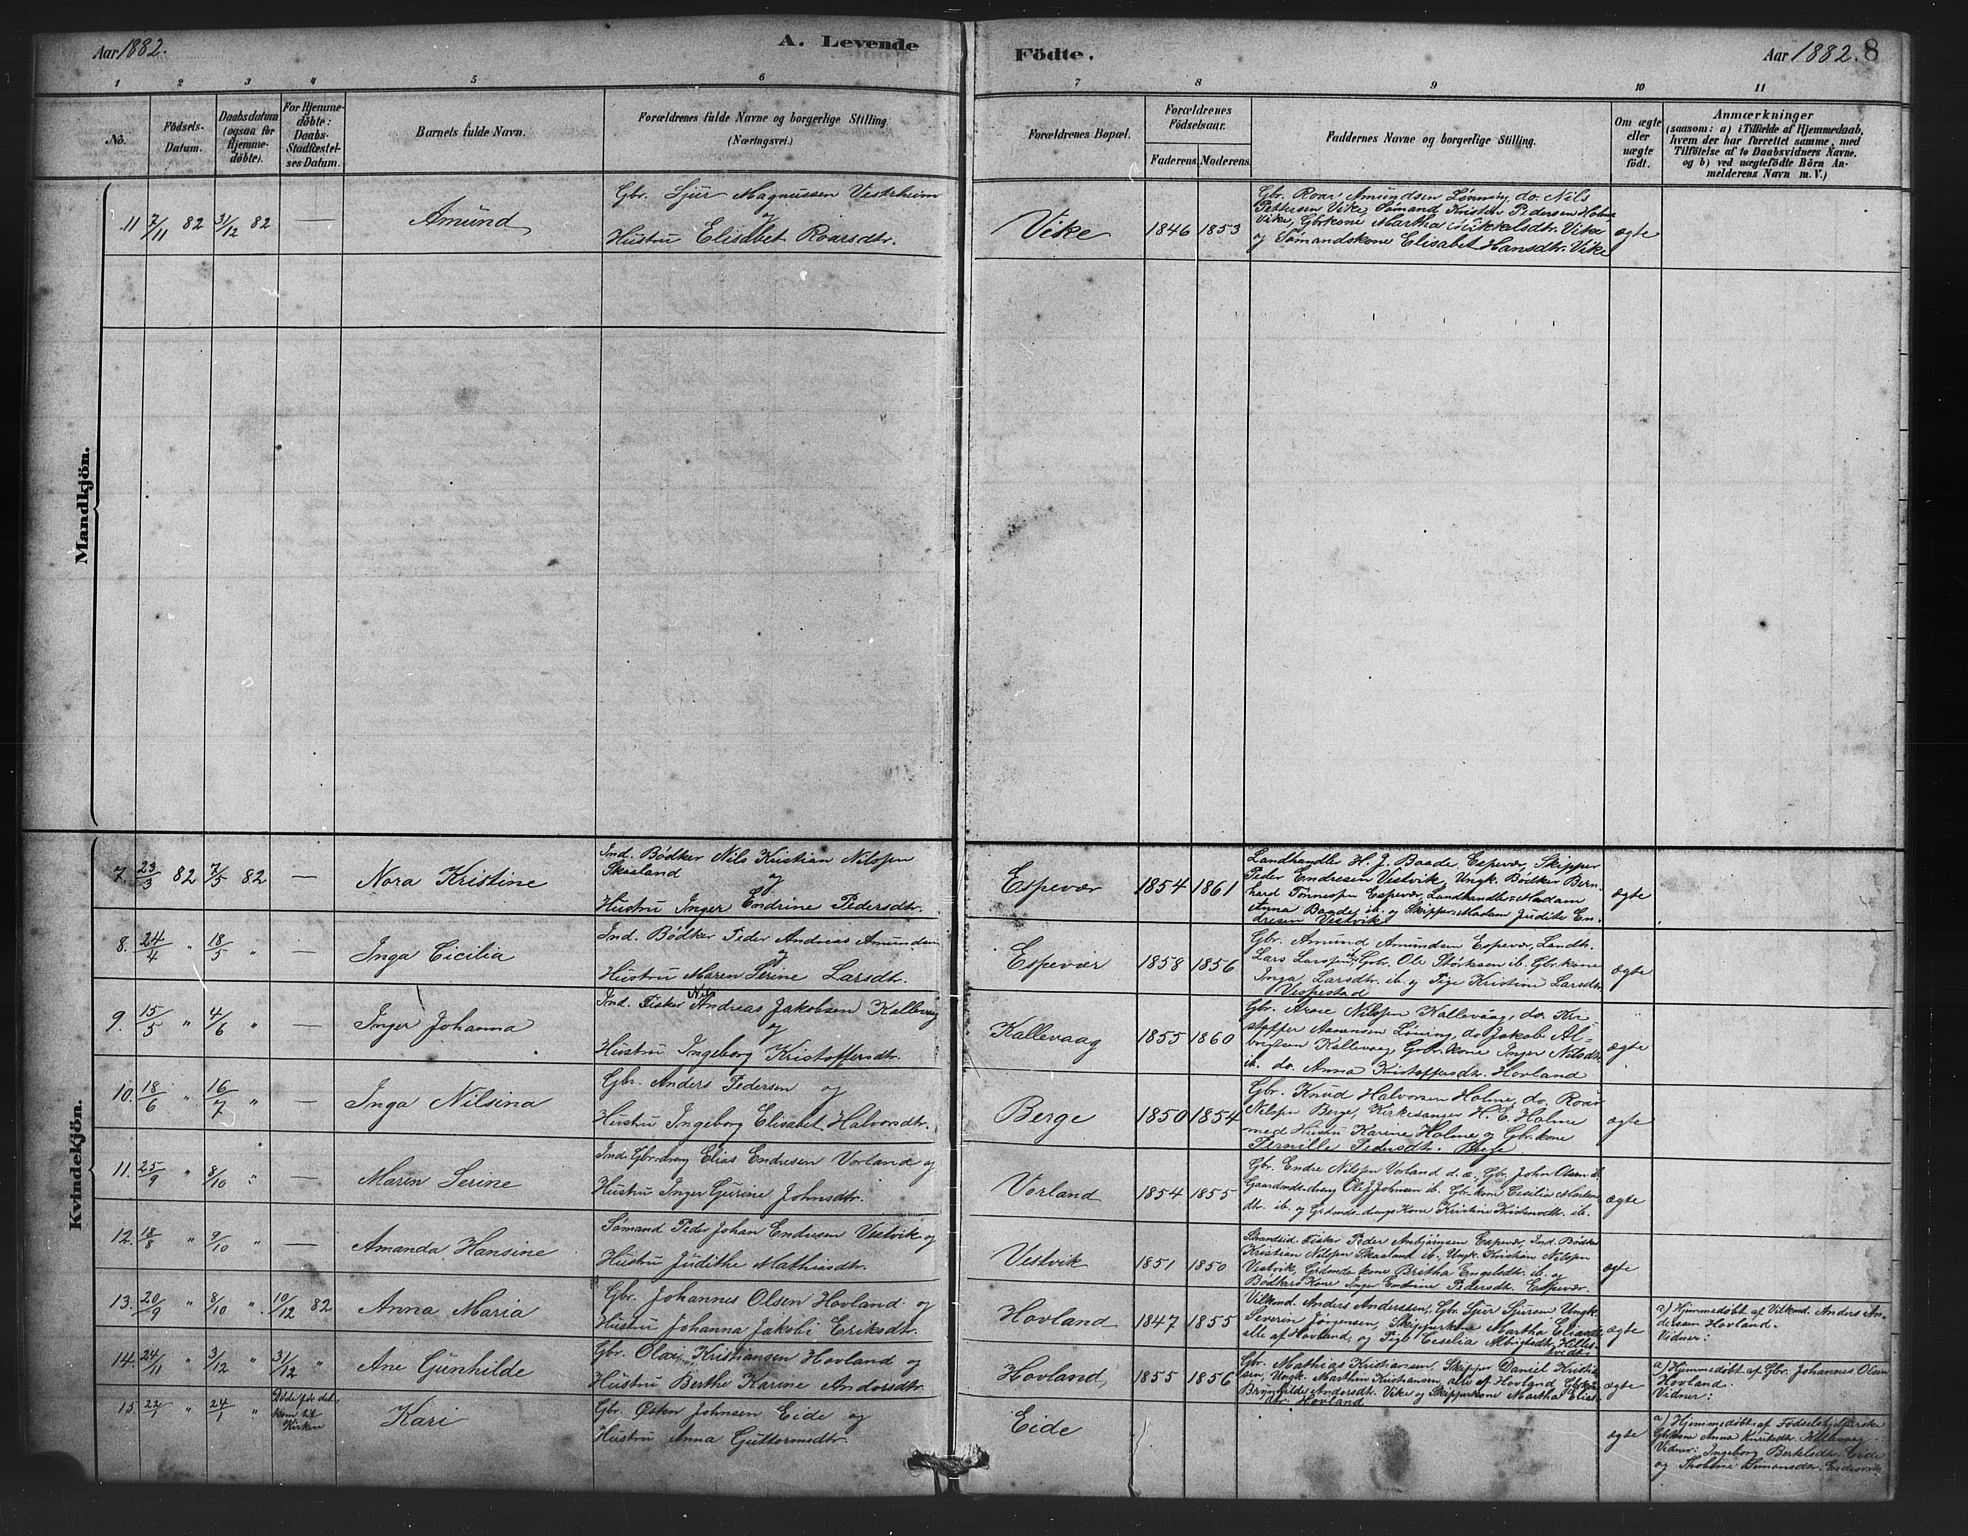 Aar 1882. A. Levende Födte. Aar 1882. 8
1 2 3 4 5 6 7 8 9 10 11
No.
Födsels-Datum.
Daabsdatum (ogsaa for Hjemme-döbte).
For Hjemme-döbte: Daabs-Stadfæstel-ses Datum.
Barnets fulde Navn.
Forældrenes fulde Navne og borgerlige Stilling (Næringsvei.)
Forældrenes Bopæl.
Forældrenes Födselsaar.
Faderens. Moderens.
Faddernes Navne og borgerlige Stilling.
Om ægte eller uægte födt.
Anmærkninger
(saasom: a) i Tilfælde af Hjemmedaab,
hvem der har forrettet samme, med
Tilföielse af to Daabsvidners Navne,
og b) ved uægtefödte Börn An-
melderens Navn m. V.)
Mandkjön.
11 7/11 82 3/12 82 — Amund
Gbr. Sjur Magnussen Vestrheim
og
Hustru Elisabet Roarsdtr.
Vike 1846 1853
Gbr. Roar Amundsen Lønning, do. Nils
Pettersen Vike, Sømand Kristen Pedersen Holme
Vike, Gbrkone Martha Mikkelsdtr. Vike
og Sømandskone Elisabet Hansdtr. Vike
ægte
Kvindekjön.
7. 23/3 82 7/5 82 — Nora Kristine
Ind. Bødker Nils Kristian Nilssen
Skaaland
og
Hustru Inger Endrine Pedersdtr.
Espevær 1854 1861
Landhandler H. J. Baade, Espevær, Skipper
Peder Endresen Vestvik, Ungk. Bødker Bern-
hard Tønnesen Espevær, Landhandler-Madam
Anna Baade ib. og Skipper-Madam Judithe En-
dresen Vestvik
ægte
8. 24/4 " 18/5 " — Inga Cicilia
Ind. Bødker Peder Andreas Amundsen
og
Hustru Maren Serine Larsdtr.
Espevær 1858 1856
Gbr. Amund Amundsen Espevær, Landh.
Lars Larssen ib., Gbr. Ole Størksen ib. Gbr.kone
Inga Larsdtr. ib. og Pige Kristine Larsdtr.
Vespestad
ægte
9. 15/5 " 4/6 " — Inger Johanna
Ind. Fisker Nils Andreas Jakobsen Kallevag
og
Hustru Ingeborg Kristoffersdtr.
Kallevaag 1855 1860
Gbr. Nilssen Kallevaag, do. Kri-
stoffer Lønning, do. Jakob Al-
brigtsen Kallevaag, Gbr.kone Inger Nilsdtr.
ib. do. Anna Kristoffersdtr. Hovland
ægte
10. 18/6 " 16/7 " — Inga Nilsina
Gbr. Anders Pedersen og
Hustru Ingeborg Elisabet Halvorsdtr.
Berge 1850 1854
Gbr. Knud Halvorsen Holme, do. Roar
Nilssen Berge, Kirkesanger H. E. Holme
med Hustru Karine Holme og Gbr.kone
Pernille Pedersdtr. Berge
ægte
11. 25/9 " 8/10 " — Maren Serine
Ind. Gbr.dreng Elias Endresen Vorland og
Hustru Inger Gurine Johnsdtr.
Vorland 1854 1855
Gbr. Endre Nilssen Vorland d. æ., Gbr. John Olsen ib.
Gaardmds-dreng Ole J. Johnsen ib. Gbr.kone Cecilia Marken-
dtr. ib. og Grdmds-drengs Kone Kristine ib.
ægte
12. 18/8 " 9/10 " — Amanda Hansine
Sømand Peder Johan Endresen Vestvik og
Hustru Judithe Mathiasdtr.
Vestvik 1851 1850
Strandsid. Fisker Peder Asbjørnsen Espevær, Ind. Bødker
Kristian Nilssen Skaaland ib., Ungk. Christian Nilssen
Vestvik, Grdmds kone Britha Engelsdtr. ib. og
Bødkers Kone Inger Endrine Pedersdtr. Espevær.
ægte
13. 20/9 " 8/10 " 10/12 82 Anna Maria
Gbr. Johannes Olsen Hovland og
Hustru Johanna Jakobi Eriksdtr.
Hovland 1847 1855
Vilkmd. Anders Anderssen, Gbr. Sjur Sjursen, Ungk.
Severin Jørgensen, Skipperkone Martha Eliasdtr.
alle af Hovland, og Pige Ceselia
ægte
a) Hjemmedøbt af Vilkmd. Anders An-
dersen Hovland.
Vidner:
14. 24/11 " 3/12 " 31/12 " Ane Gunhilde
Gbr. Olai Kristiansen Hovland og
Hustru Berthe Karine Andersdtr.
Hovland 1855 1856
Gbr. Mathias Kristiansen, Skipper Daniel Kristian-
sen, Ungk. Marthin Kristiansen, alle af Hovland, Gbr.kone
Brynhilde Andersdtr. Vike og Skipperkone Martha Elias-
dtr. Hovland
ægte
a) Hjemmedøbt af Gbr. Johannes Olsen
Hovland.
Vidner:
15. 22/1 " 24/1 " Døde før det
kom til
Kirken
Kari
Gbr. Østen Johnsen Eide og
Hustru Anna Guttormsdtr.
Eide
ægte
a) Hjemmedøbt af Fødselshjelperske
Gbrkone Anna Knutsdtr. Kallevaag
Vidner: Ingeborg Bertelsdtr. Eide
og Tholine Simonsdtr. Eidesvik